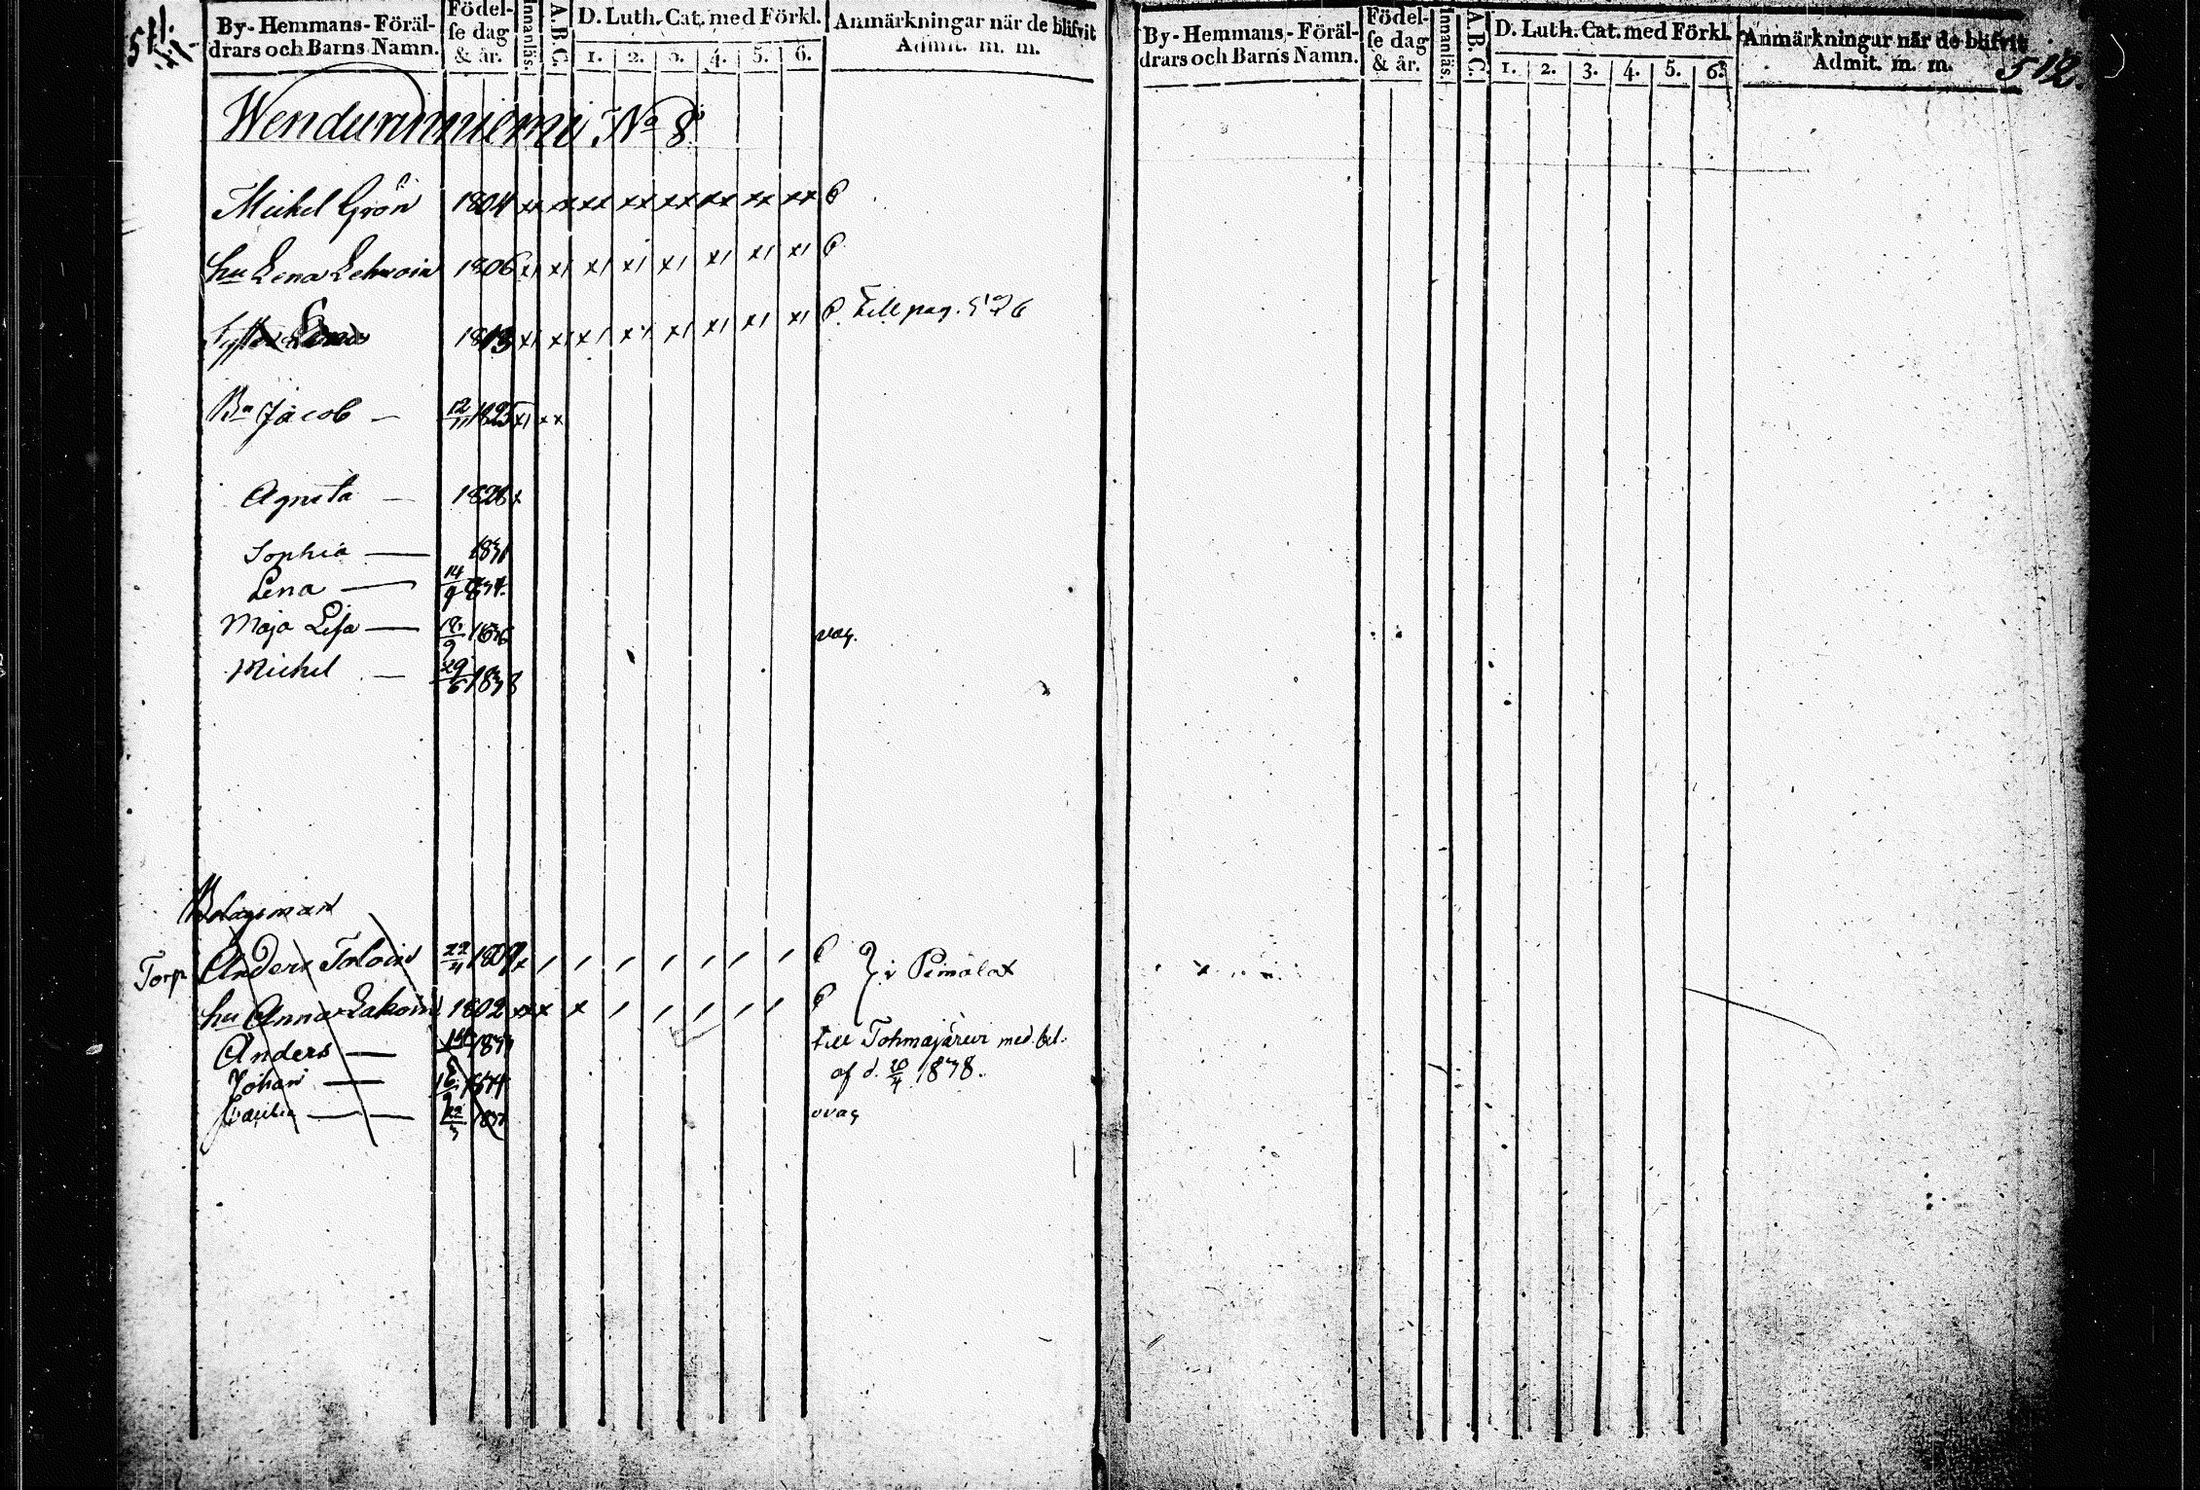 511.
By- Hemmans- Föräl-
drars och Barns Namn.
Födel-
se dag
& år.
Innanläs.
A.B.C.
D. Luth. Cat. med Förkl.
1. 2. 3. 4. 5. 6.
Anmärkningar når de blifvit
Admit. m. m.
Wendurinniemi No 8
Mickel Grön 1804 xx xx xx xx xx xx xx xx
hu Lena Lehvoin 1806 x x x x x x x x
Syster 1813 till pag. 526
Bn Jacob — 12/11 1825 x xx
Agneta — 1828 x
Sophia — 1831
Lena — 14/9 1834
Maja Lisa — 18/9 1836 vac.
Michel — 29/6 1838
Bolagsman
Torp. Anders Toloin 22/4 1809 i Pimälax
hu Anna Lakoin 1802 xx x x
Anders — 1833 till Tohmajärvi med bet.
Johan — 1834 af d. 20/4 1838.
— 1837 ovac
By- Hemmans- Föräl-
drars och Barns Namn.
Födel-
se dag
& år.
Innanläs.
A.B.C.
D. Luth. Cat. med Förkl.
1. 2. 3. 4. 5. 6.
Anmärkningar når de blifvit
Admit. m. m.
512.